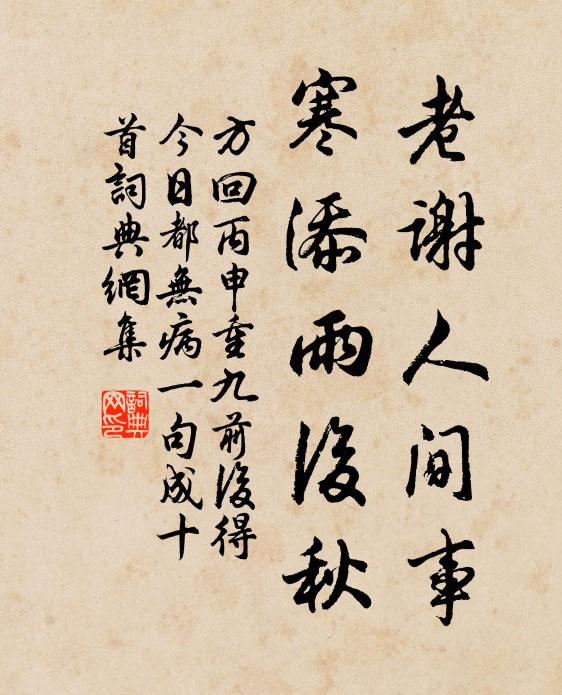 老谢人间事
寒添雨後秋
方回丙申重九前後得
今日都無病一句成十
首詞典網集
詞典
网印